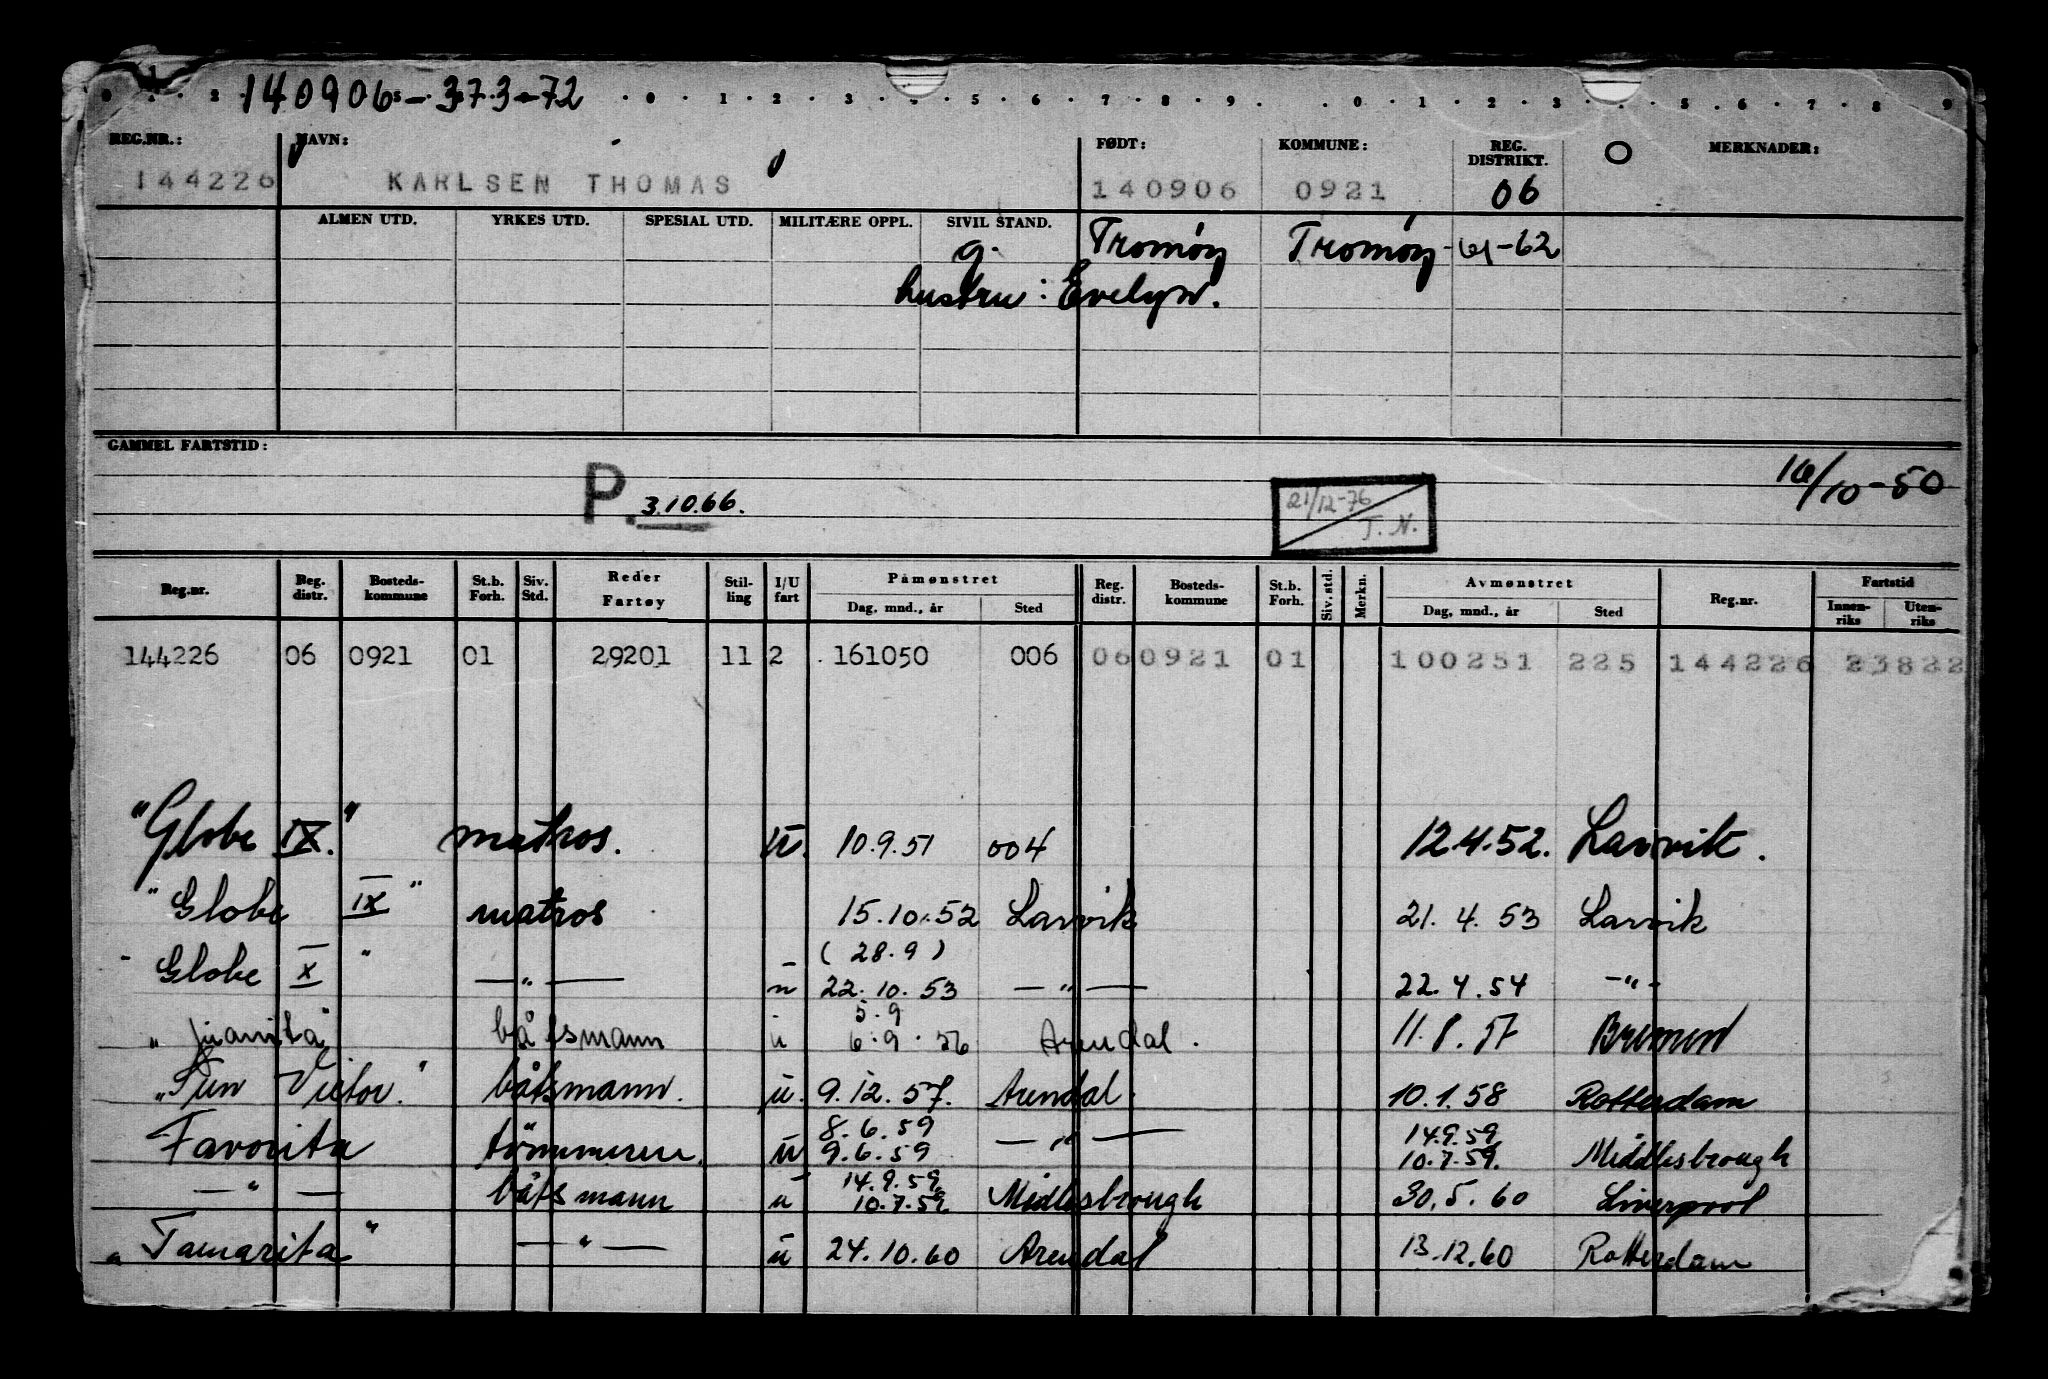 140906 - 373-72
REG.NR.: NAVN: FØDT: KOMMUNE: REG. DISTRIKT. MERKNADER:
144226 KARLSEN THOMAS 140906 0921 06
ALMEN UTD. YRKES UTD. SPESIAL UTD. MILITÆRE OPPL. SIVIL STAND.
g. Tromøy Tromøy - 61-62
hustru: Evelyn.
GAMMEL FARTSTID:
16/10-50
P. 3.10.66.
21/12-76
T. N.
Reg.nr. Reg. distr. Bosteds-kommune St.b. Forh. Siv. Std. Reder Fartøy Stil-ling I/U fart Påmønstret Dag, mnd., år Sted Reg. distr. Bosteds-kommune St.b. Forh. Siv. std. Merkn. Avmønstret Dag, mnd., år Sted Reg.nr. Fartstid Innen-riks Uten-riks
144226 06 0921 01 29201 11 2 161050 006 06 0921 01 100251 225 144226 23822
"Globe IX." matros. ū. 10.9.51 004 12.4.52. Larvik.
"Globe IX" matros 15.10.52 Larvik 21.4.53 Larvik
(28.9)
"Globe X" —"— u 22.10.53 —"— 22.4.54 —"—
5.9
"Juanita" båtsmann u 6.9.56 Arendal. 11.8.57 Bremen
"Sun Victor." båtsmann. u. 9.12.57. Arendal 10.1.58 Rotterdam
8.6.59 14.9.59
Favorita tømmerm. u 9.6.59 —"— 10.7.59. Middlesbrough
14.9.59
—"— båtsmann u 10.7.59 Midlesbrough 30.5.60 Liverpool
"Tamarita" —"— u 24.10.60 Arendal 13.12.60 Rotterdam